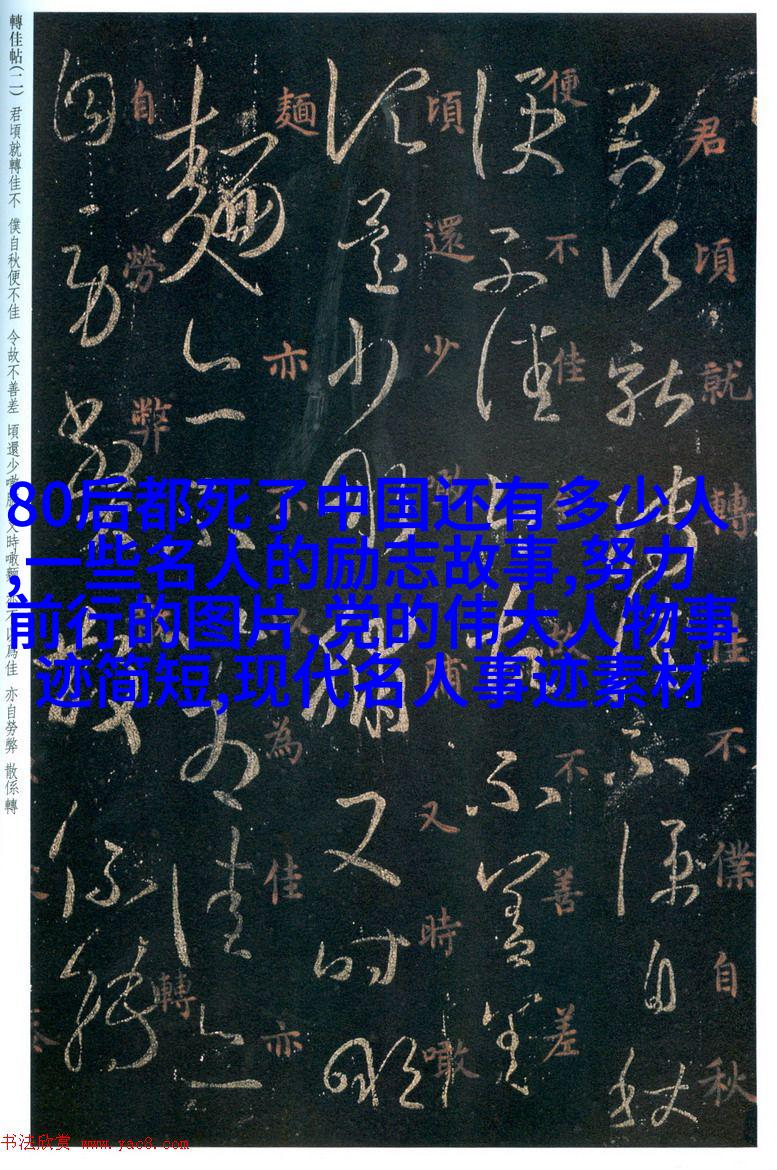 轉佳帖(二) 君頃就轉佳不 僕自秋便不佳 令故不善差 頃還少噉
時噉麵
為佳 亦自勞弊 散係轉
君頃就轉佳不僕自秋
便不佳令故不善差
頃還少噉脯又時噉
麵亦不以為佳亦
自勞弊散轉
80后都死了中国还有多少人
,一些名人的励志故事,努力
前行的图片,党的伟大人物事
迹简短,现代名人事迹素材
书法欣赏 www.yac8.com